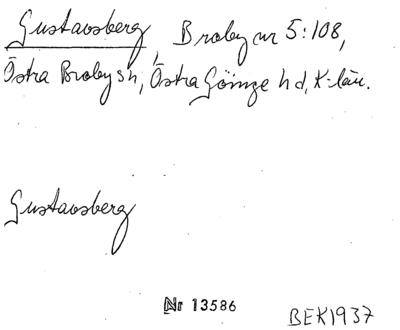 Gustavsberg, Broby nr 5:108,
Östra Broby sn, Östra Göinge hd, K-län.
Gustavsberg
Nr 13586
BEK1937